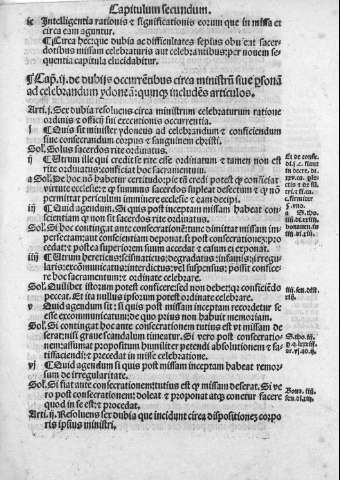 Capitulum secundum.
ic Intelligentia rationis ⁊ significationis eorum que in missa et
circa eam aguntur.
¶ Circa hec: que dubia ac difficultates sepius obuẽiũt sacer-
dotibus missam celebraturis aut celebrantibus: per nouem se-
quentia capitula elucidabitur.
¶ Cap. ij. de dubijs occurrẽtibus circa ministrũ siue ꝑsonã
ad celebrandum ydoneã: quinqꝫ includẽs articulos.
Arti. j. Sex dubia resolucus circa ministrum celebraturum ratione
ordinis ⁊ officij sui excipientis occurrentia.
i Quis sit minister ydoneus ad celebrandum ⁊ conficiendum
siue consecrandum corpus ⁊ sanguinem christi.
Sol. Solus sacerdos rite ordinatus.
ij ¶ Utrum ille qui credit se rite esse ordinatum ⁊ tamen non est
rite ordinatus: conficiat hoc sacramentum.
a Sol. De hoc nõ habetur certitudo: pie tñ credi potest ꝙ conficiat
virtute ecclesie: ⁊ ꝙ summus sacerdos supleat defectum ⁊ ꝙ nõ
permittat periculum imminere ecclesie ⁊ eam decipi.
iij ¶ Quid agendum. Si quis post inceptam missam habeat con-
scientiam ꝙ non sit sacerdos rite ordinatus.
Sol. Si hoc contingat ante consecrationẽ: tunc dimittat missam im-
perfectam: aut conscientiam deponat. si post consecrationeꝫ: pro-
cedat: ⁊ postea superiorem suum accedat ⁊ casum ei exponat.
iiij ¶ Utrum hereticus: scismaticus: degradatus: infamis: irregu-
laris: excõmunicatus: interdictus: vel suspensus: possit confice-
re hoc sacramentum: ⁊ ordinate celebrare.
Sol. Quilibet istorum potest conficere: sed non debet: qꝛ conficiẽdo
peccat. Et ita nullus ipsorum potest ordinate celebrare.
v Quid agendum sit: si quis post missam inceptam recordetur se
esse excommunicatum: de quo prius non habuit memoriam.
Sol. Si contingat hoc ante consecrationem tutius est vt missam de
serat: nisi graue scandalum timeatur. Si vero post consecratio-
nem: assumat propositum humiliter petendi absolutionem ⁊ sa-
tisfaciendi: ⁊ procedat in misse celebratione.
vj ¶ Quid agendum si quis post missam inceptam habeat remor-
sum de irregularitate.
Sol. Si fiat ante consecrationem: tutius est ꝙ missam deserat. Si ve
ro post consecrationem: doleat ⁊ proponat atqꝫ conetur facere
quod in se est: ⁊ procedat.
Arti. ij. Resoluens sex dubia que incidunt circa dispositioneꝫ corpo
ris ipsius ministri.